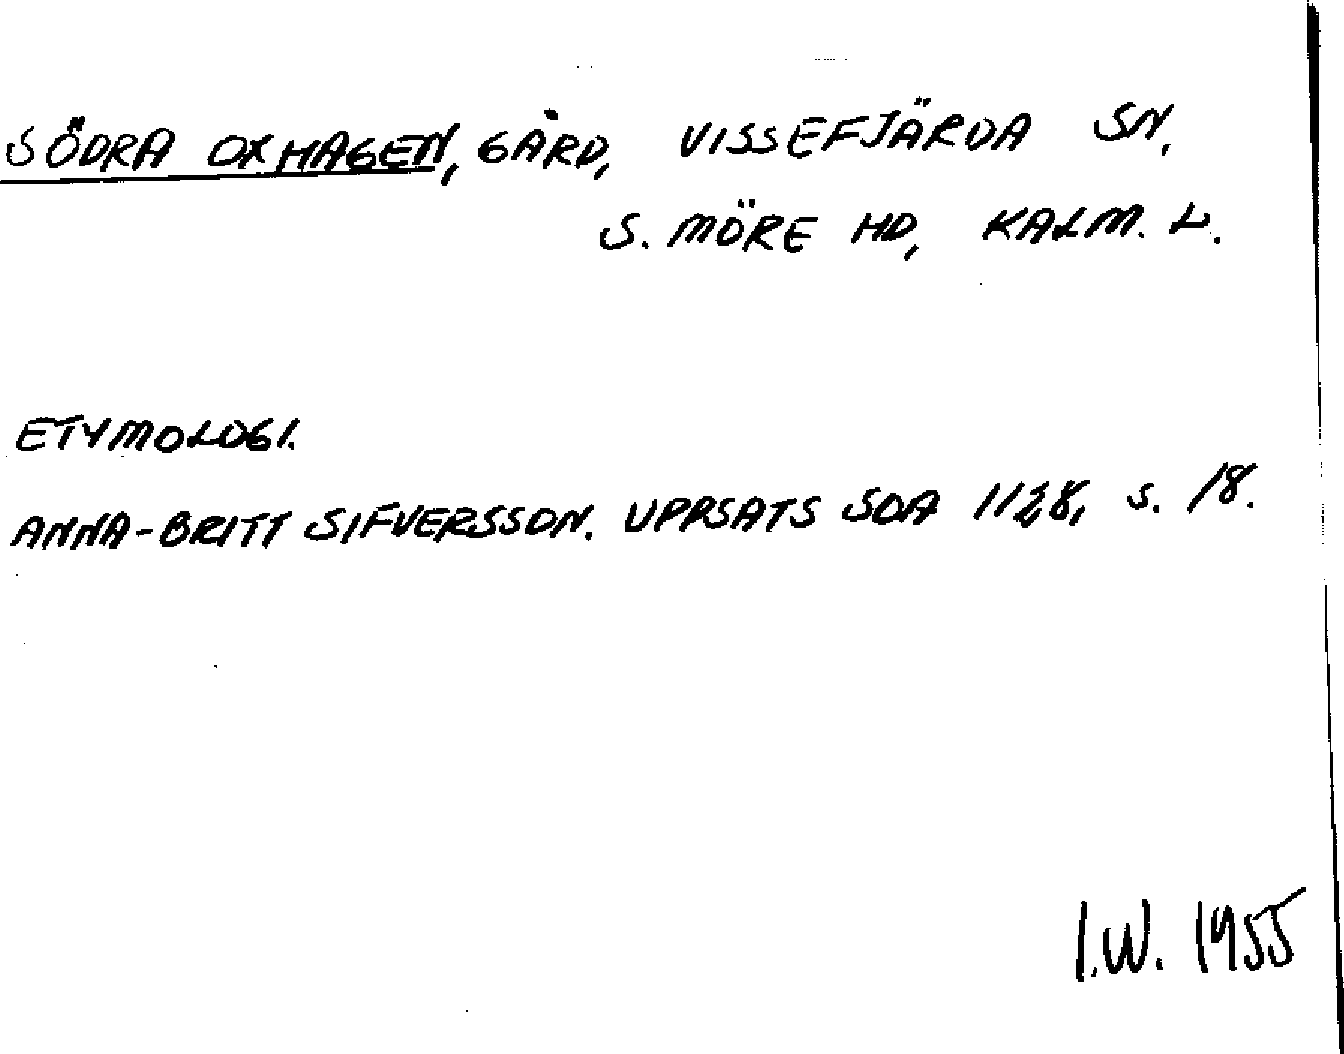 SÖDRA OXHAGEN, GÅRD, VISSEFJÄRDA SN,
S. MÖRE HD, KALM. L.
ETYMOLOGI.
ANNA-BRITT SIFVERSSON. UPPSATS SOA 1128, S. 18.
I.W. 1955